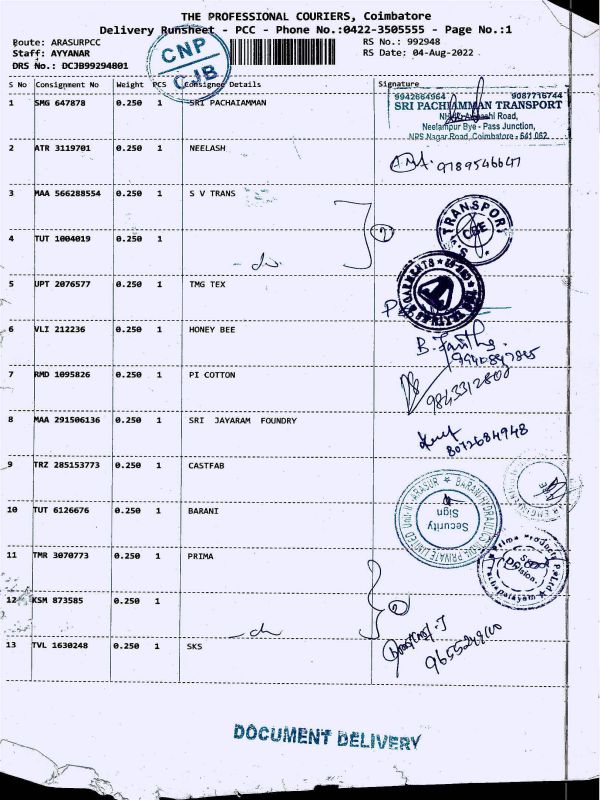 THE PROFESSIONAL COURIERS, Coimbatore
Delivery Runsheet - PCC - Phone No.:0422-3505555 - Page No.:1
Route: ARASURPCC
RS No.: 992948
Staff: AYYANAR
RS Date: 04-Aug-2022
DRS No.: DCJB99294801
CNP
CJB
S No Consignment No Weight PCS Consignee Details Signature
1 SMG 647878 0.250 1 SRI PACHAIAMMAN
9942664964 9087716744
SRI PACHIAMMAN TRANSPORT
Road,
Neelampur Bye - Pass Junction,
NPS Nagar Road, Coimbatore - 641 062.
2 ATR 3119701 0.250 1 NEELASH
9789546647
3 MAA 566288554 0.250 1 S V TRANS
TRANSPORT
CBE
4 TUT 1004019 0.250 1
2
5 UPT 2076577 0.250 1 TMG TEX
GARMENTS
6 VLI 212236 0.250 1 HONEY BEE
7 RMD 1095826 0.250 1 PI COTTON
8 MAA 291506136 0.250 1 SRI JAYARAM FOUNDRY
8072684948
9 TRZ 285153773 0.250 1 CASTFAB
10 TUT 6126676 0.250 1 BARANI
BARANI HYDRAULICS INDIA PRIVATE LIMITED Unit-II-ARASUR
Security
Sign
11 TMR 3070773 0.250 1 PRIMA
Prima Products
Division
12 KSM 873585 0.250 1
2
13 TVL 1630248 0.250 1 SKS
DOCUMENT DELIVERY